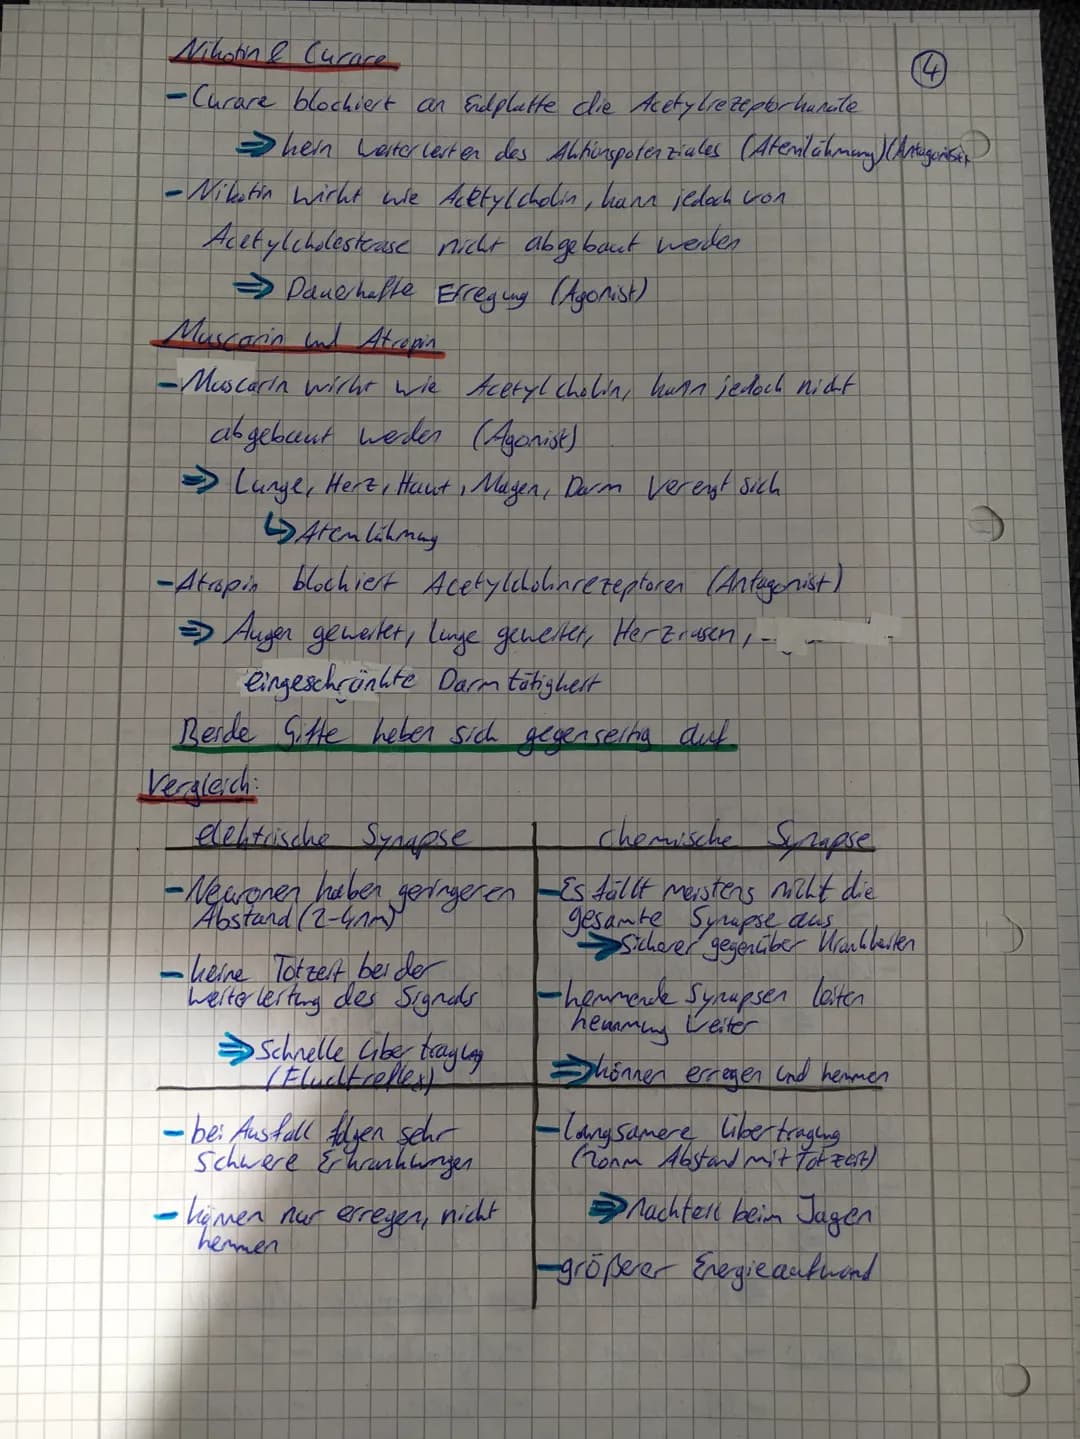 Nikotin & Curare
4
- Curare blochiert an Endplatte die Acetylrezeptorkanäle
⇒ kein Weiterleiten des Aktionspotenziales (Atemlähmung) (Antagonist)
- Nikotin wirkt wie Acetylcholin, kann jedoch von
Acetylcholesterase nicht abgebaut werden
⇒ Dauerhafte Erregung (Agonist)
Muscarin und Atropin
- Muscarin wirkt wie Acetylcholin, kann jedoch nicht
abgebaut werden (Agonist)
⇒ Lunge, Herz, Haut, Magen, Darm verengt sich
↳ Atemlähmung
- Atropin blochiert Acetylcholinrezeptoren (Antagonist)
⇒ Augen geweitet, Lunge geweitet, Herzrasen,
eingeschränkte Darmtätigkeit
Beide Gifte heben sich gegenseitig auf
Vergleich:
elektrische Synapse
- Neuronen haben geringeren
Abstand (2-4nm)
- keine Totzeit bei der
Weiterleitung des Signals
⇒ Schnelle Übertragung
(Fluchtreflex)
- bei Ausfall folgen sehr
schwere Erkrankungen
- können nur erregen, nicht
hemmen
chemische Synapse
- Es fällt meistens nicht die
gesamte Synapse aus
⇒ Sicherer gegenüber Krankheiten
- hemmende Synapsen leiten
hemmung weiter
⇒ können erregen und hemmen
- langsamere Übertragung
(20nm Abstand mit Totzeit)
⇒ Nachteil beim Jagen
- größerer Energieaufwand